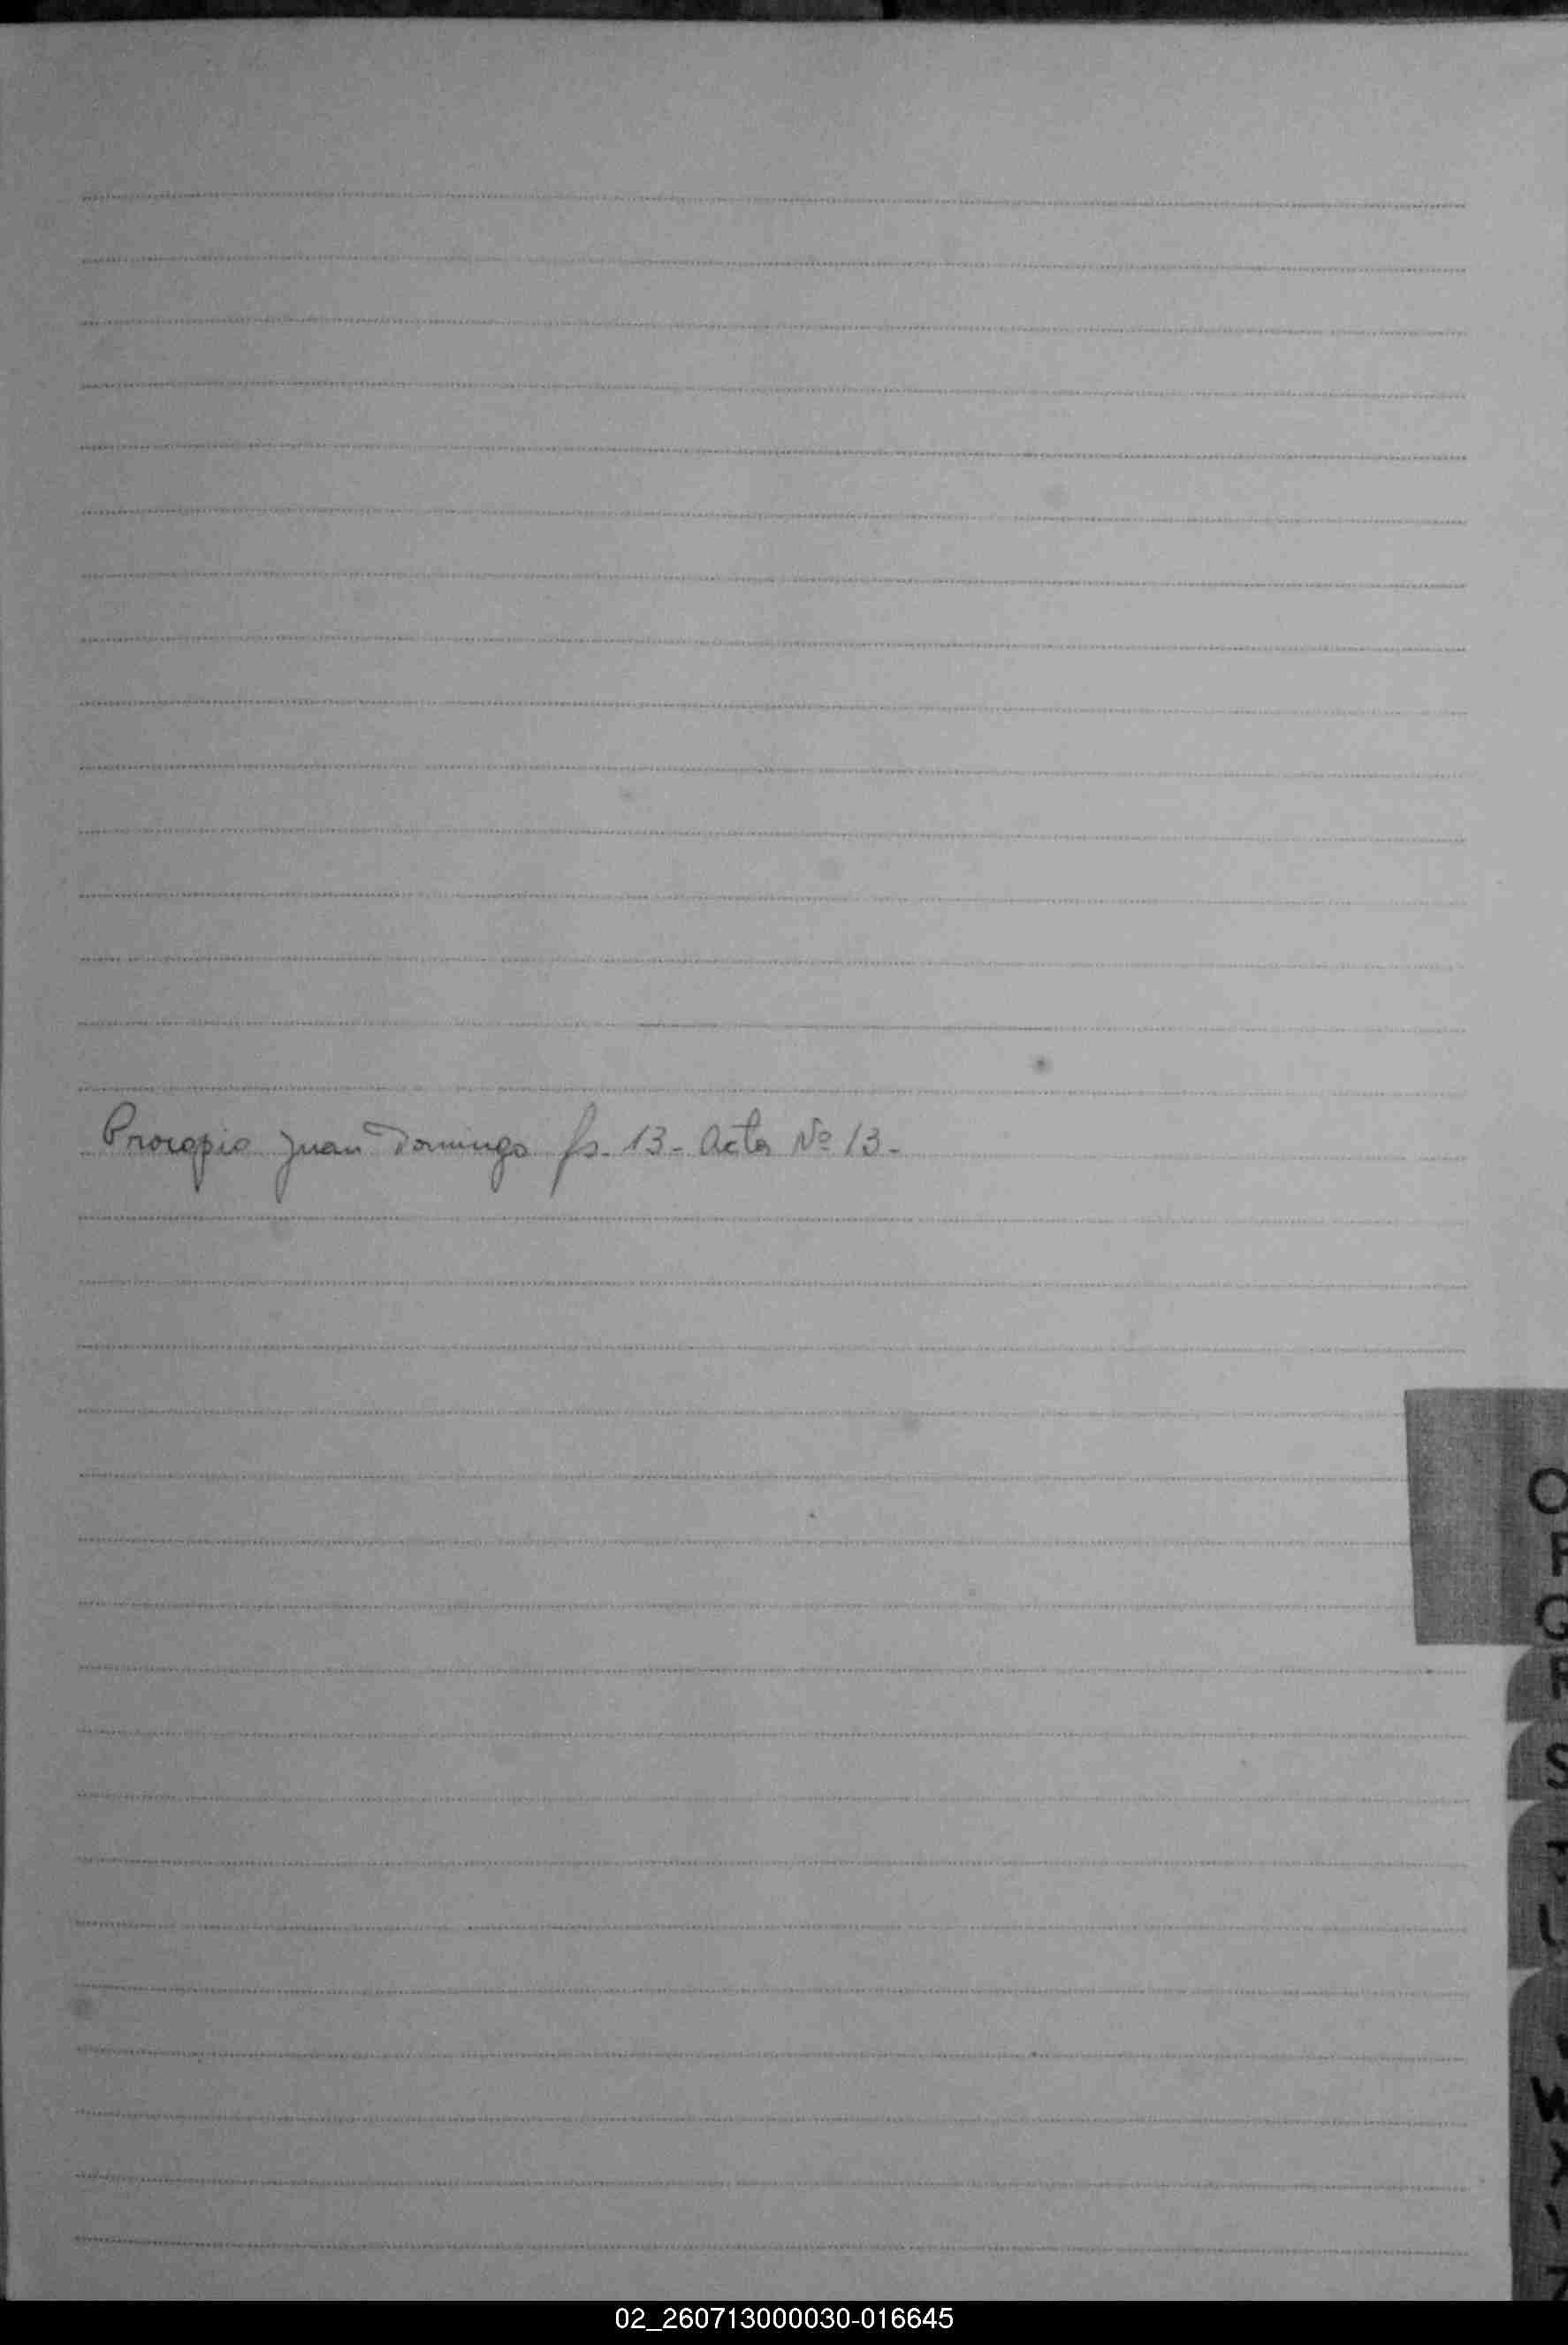 Procopio Juan Domingo fs. 13- Acta Nº 13-
O
P
Q
R
S
T
U
V
W
X
Y
Z
02_260713000030-016645